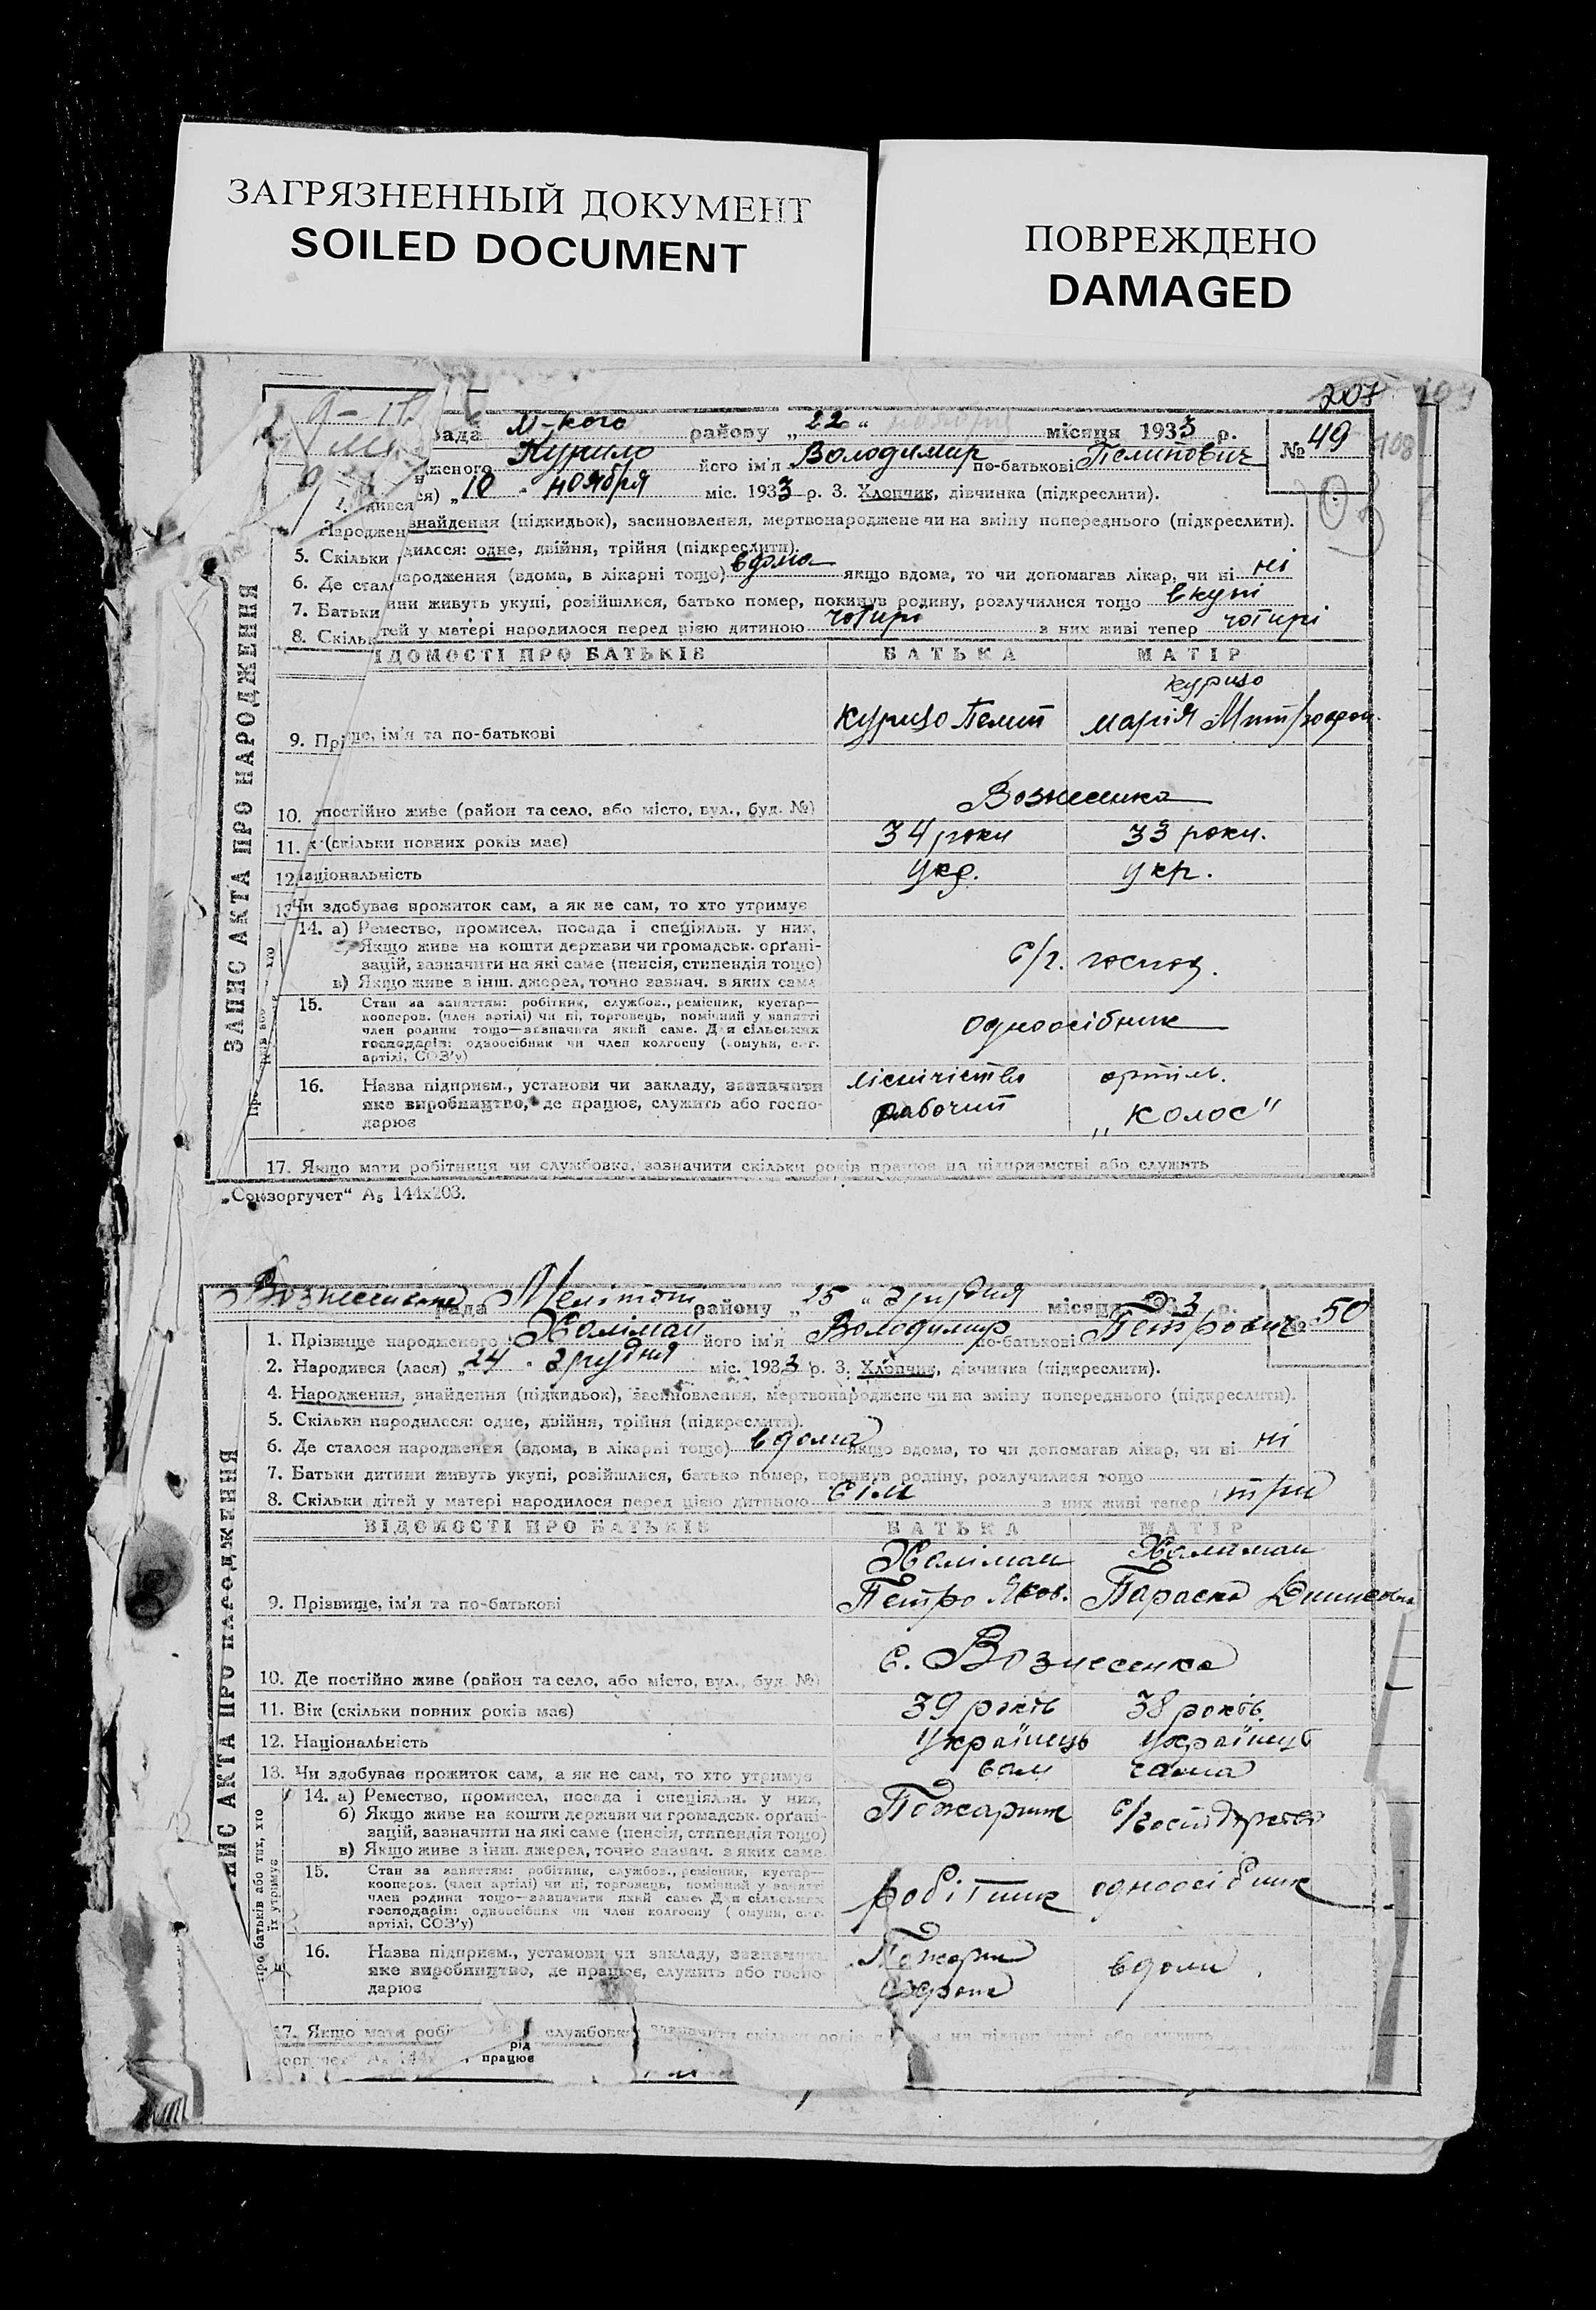 ЗАГРЯЗНЕННЫЙ ДОКУМЕНТ
SOILED DOCUMENT
ПОВРЕЖДЕНО
DAMAGED
207
рада М-кого району „22“ місяця 1933 р.
№ 49
108
Курило його ім'я Володимир по-батькові
„10 “ ноября міс. 1933 р. 3. Хлопчик, дівчинка (підкреслити).
Народжен знайдення (підкидьок), засиновлення, мертвонароджене чи на зміну попереднього (підкреслити).
5. Скільки дилося: одне, двійня, трійня (підкреслити).
6. Де стал народження (вдома, в лікарні тощо) вдома якщо вдома, то чи допомагав лікар, чи ні ні
7. Батьки ини живуть укупі, розійшлися, батько помер, покинув родину, розлучилися тощо вкупі
8. Скільк тей у матері народилося перед цією дитиною чотирі з них живі тепер чотирі
ІДОМОСТІ ПРО БАТЬКІВ БАТЬКА МАТІР
9. Прі ще, ім'я та по-батькові
Марія
10. постійно живе (район та село, або місто, вул., буд. №) Вознесенка
11. к (скільки повних років має) 34 роки 33 роки.
12. аціональність укр. укр.
13 Чи здобуває прожиток сам, а як не сам, то хто утримує
14. а) Ремество, промисел, посада і спеціяльн. у них,
Якщо живе на кошти держави чи громадськ. орґані-
зацій, зазначити на які саме (пенсія, стипендія тощо)
в) Якщо живе з інш. джерел, точно зазнач. з яких саме
с/г. господ.
15. Стан за заняттям: робітник, службов., ремісник, кустар—
кооперов. (член артілі) чи ні, торговець, помічний у занятті
член родини тощо—зазначити який саме. Для сільських
господарів: одноосібник чи член колгоспу (комуни, с.-г.
артілі, СОЗ'у)
одноосібник
16. Назва підприєм., установи чи закладу, зазначити
яке виробництво, де працює, служить або госпо-
дарює
рабочий
артіль.
„Колос“
17. Якщо мати робітниця чи службовка, зазначити скільки років працює на підприємстві або служить
ЗАПИС АКТА ПРО НАРОДЖЕННЯ
„Союзоргучет“ А5 144х203.
рада Меліт району „25“ грудня місяця 1933 р.
№ 50
1. Прізвище народженого Халіман його ім'я Володимир по-батькові Петрович
2. Народився (лася) „24 “ грудня міс. 1933 р. 3. Хлопчик, дівчинка (підкреслити).
4. Народження, знайдення (підкидьок), засиновлення, мертвонароджене чи на зміну попереднього (підкреслити).
5. Скільки народилося: одне, двійня, трійня (підкреслити).
6. Де сталося народження (вдома, в лікарні тощо) вдома якщо вдома, то чи допомагав лікар, чи ні ні
7. Батьки дитини живуть укупі, розійшлися, батько помер, покинув родину, розлучилися тощо
8. Скільки дітей у матері народилося перед цією дитиною сім з них живі тепер три
ВІДОМОСТІ ПРО БАТЬКІВ БАТЬКА МАТІР
Халіман Халиман
9. Прізвище, ім'я та по-батькові Петро Яков. Параска
10. Де постійно живе (район та село, або місто, вул., буд. №) с. Вознесенка
11. Вік (скільки повних років має) 39 років 38 років
12. Національність Українець
13. Чи здобуває прожиток сам, а як не сам, то хто утримує сам сама
14. а) Ремество, промисел, посада і спеціяльн. у них,
б) Якщо живе на кошти держави чи громадськ. орґані-
зацій, зазначити на які саме (пенсія, стипендія тощо)
в) Якщо живе з інш. джерел, точно зазнач. з яких саме
Пожарник
15. Стан за заняттям: робітник, службов., ремісник, кустар—
кооперов. (член артілі) чи ні, торговець, помічний у занятті
член родини тощо—зазначити який саме. Для сільських
господарів: одноосібник чи член колгоспу (комуни, с.-г.
артілі, СОЗ'у)
робітник одноосібник
16. Назва підприєм., установи чи закладу, зазначити
яке виробництво, де працює, служить або госпо-
дарює
охрона
вдома
17. Якщо мати робі службовка зазначити скільки років
рід
працює
про батьків або тих, хто їх утримує